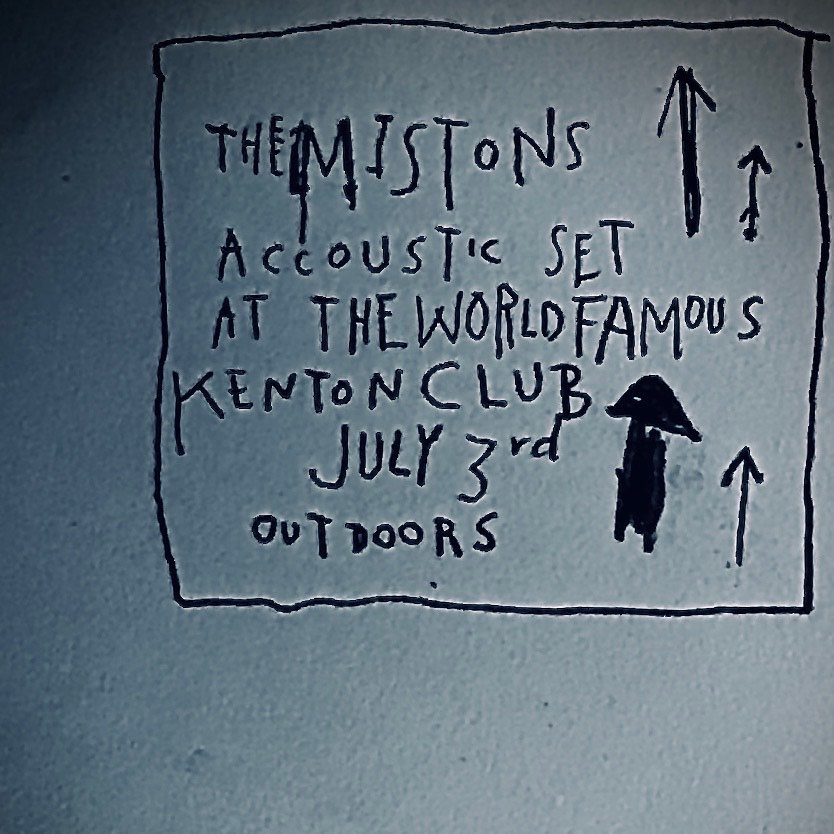 THE MISTONS
ACCOUSTIC SET
AT THE WORLD FAMOUS
KENTON CLUB
JULY 3rd
OUTDOORS